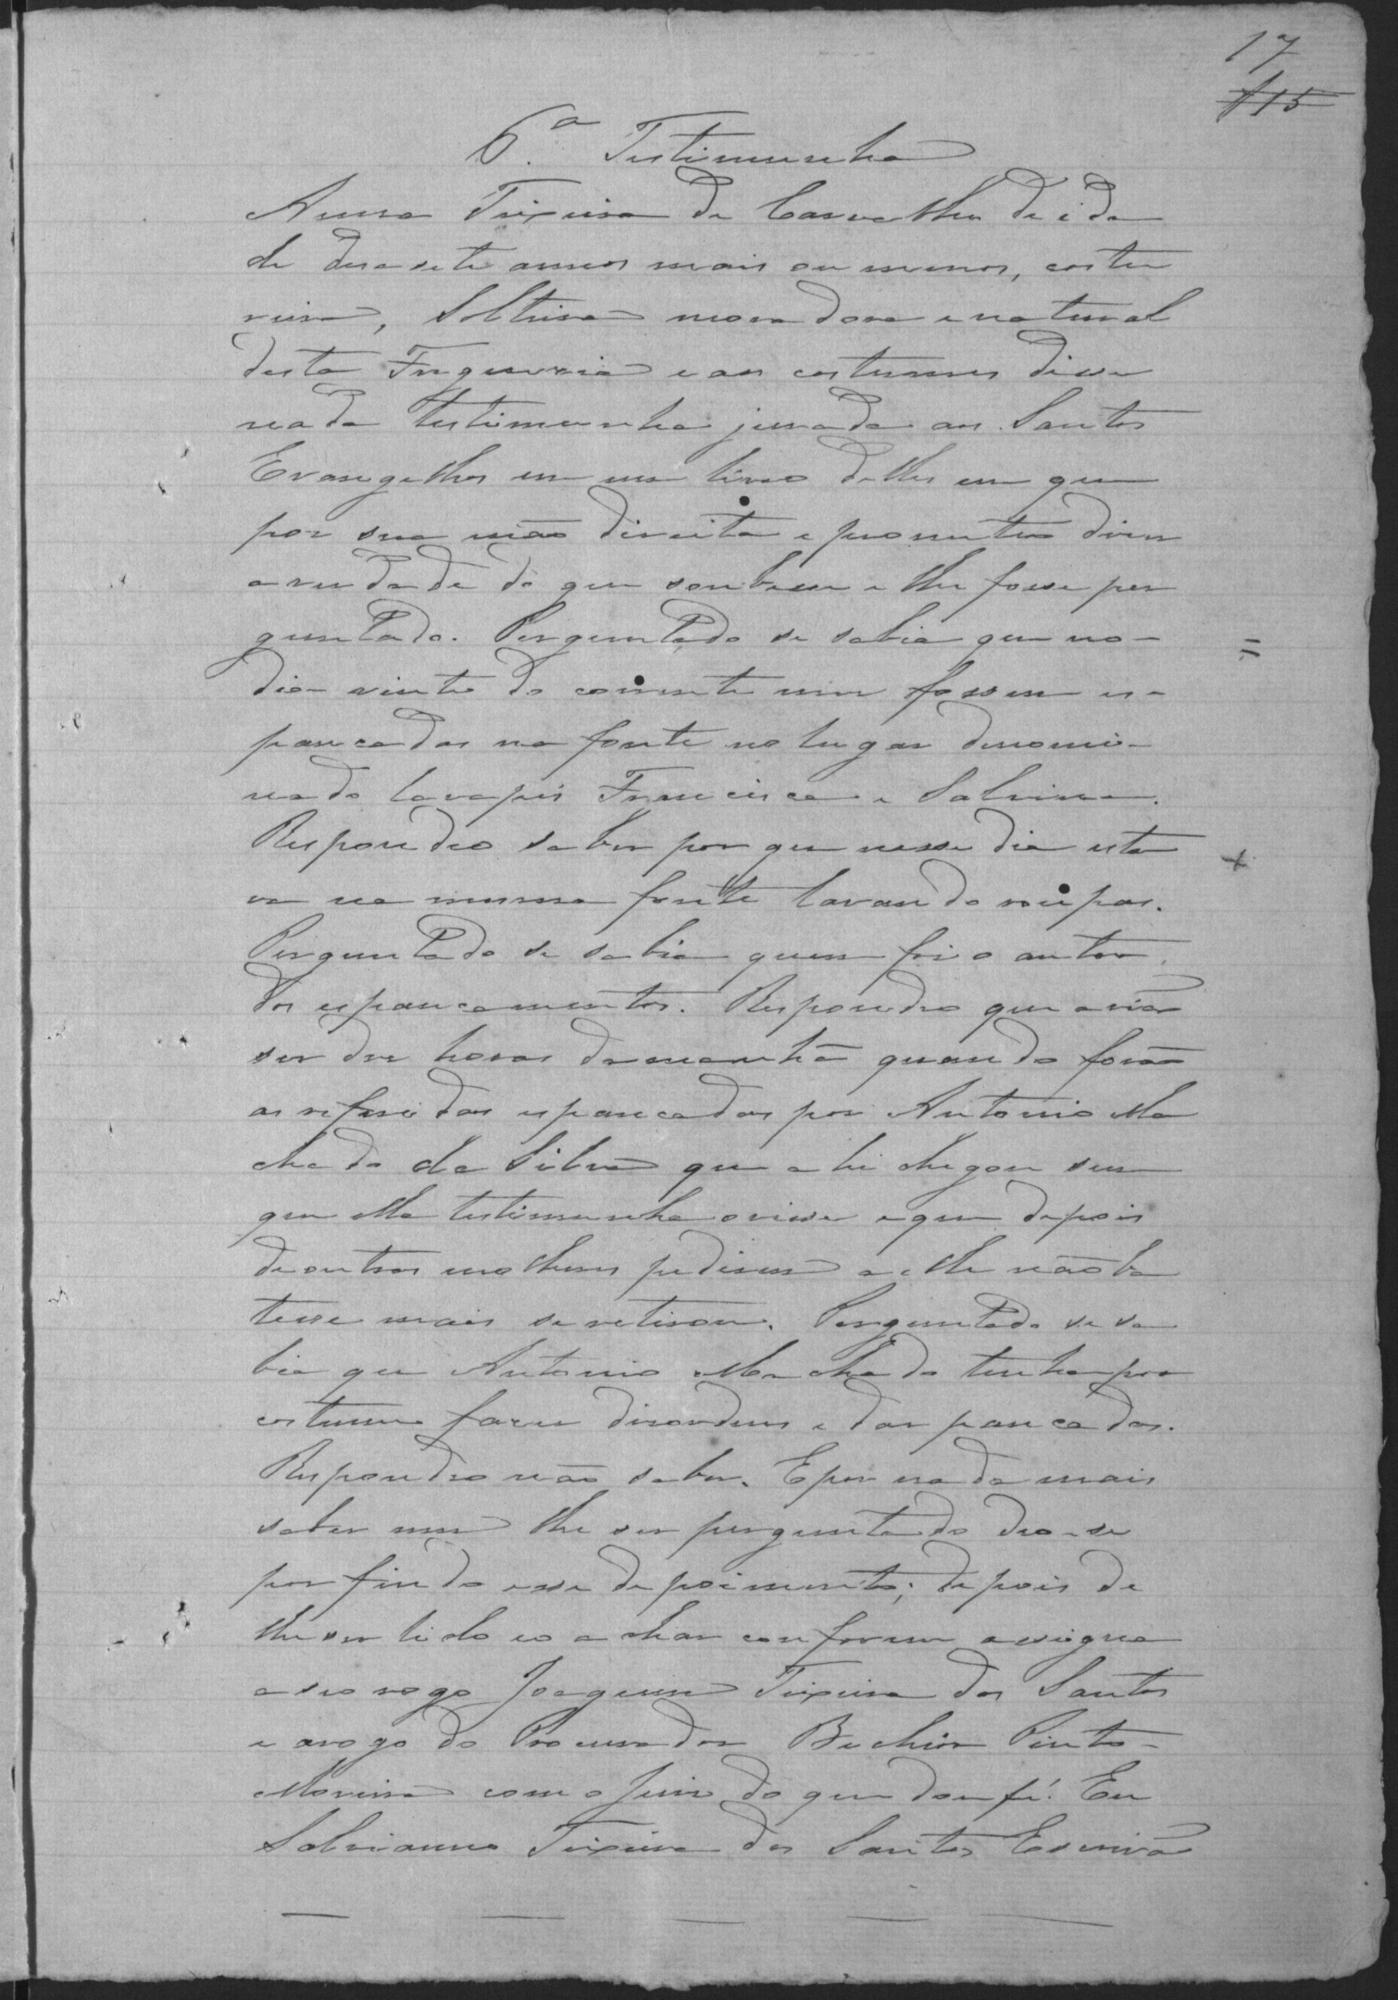 17
115
6.ª Testimunha
Anna Teixeira de Carvalho de ida
de desesete annos mais ou menos, costu
reira, Solteira moradora e natural
desta Freguesia e aos costumes disse
nada testimunha jurada aos Santos
Evangelhos em um livro delles em que
por sua mão direita e prometteo dizer
a verdade do que soubesse e lhe fosse per
guntado. Perguntado se sabia que no
dia vinte do corrente mez fossem es-
pancadas na fonte no lugar denomi-
nado lavapés Francisca e Salvina.
Respondeo saber por que nesse dia esta
va na mesma fonte lavando roupas.
Perguntado se sabia quem foi o autor
dos espancamentos. Respondeo que avia
ser dez horas da manhã quando forão
as referidas espancadas por Antonio Ma
chado da Silva que ahi chegou sem
que ella testimunha o visse e que depois
de outras molheres pedirem a elle não ba
tesse mais se retirou. Perguntado se sa
bia que Antonio Machado tenha por
costume fazer disordens e dar pancadas.
Respondeo não saber. E por nada mais
saber nem lhe ser perguntado deo-se
por findo esse depoimento; depois de
lhe ser lido e o achar conforme assigna
a seo rogo Joaquim Teixeira dos Santos
e arogo do Procurador Bechior Pinto
Moreira com o Juiz do que dou fé. Eu
Salvianno Teixeira dos Santos Escrivão